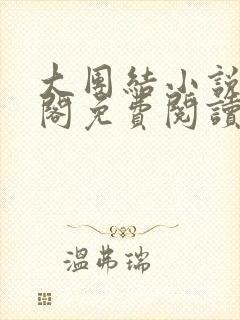 大團結小說
閣免費閱讀
溫弗瑞